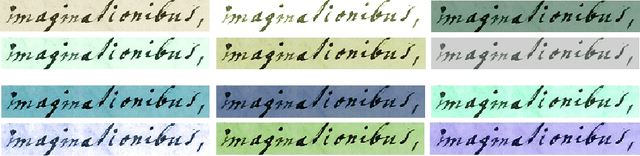 imaginationibus,
imaginationibus,
imaginationibus,
imaginationibus,
imaginationibus,
imaginationibus,
imaginationibus,
imaginationibus,
imaginationibus,
imaginationibus,
imaginationibus,
imaginationibus,